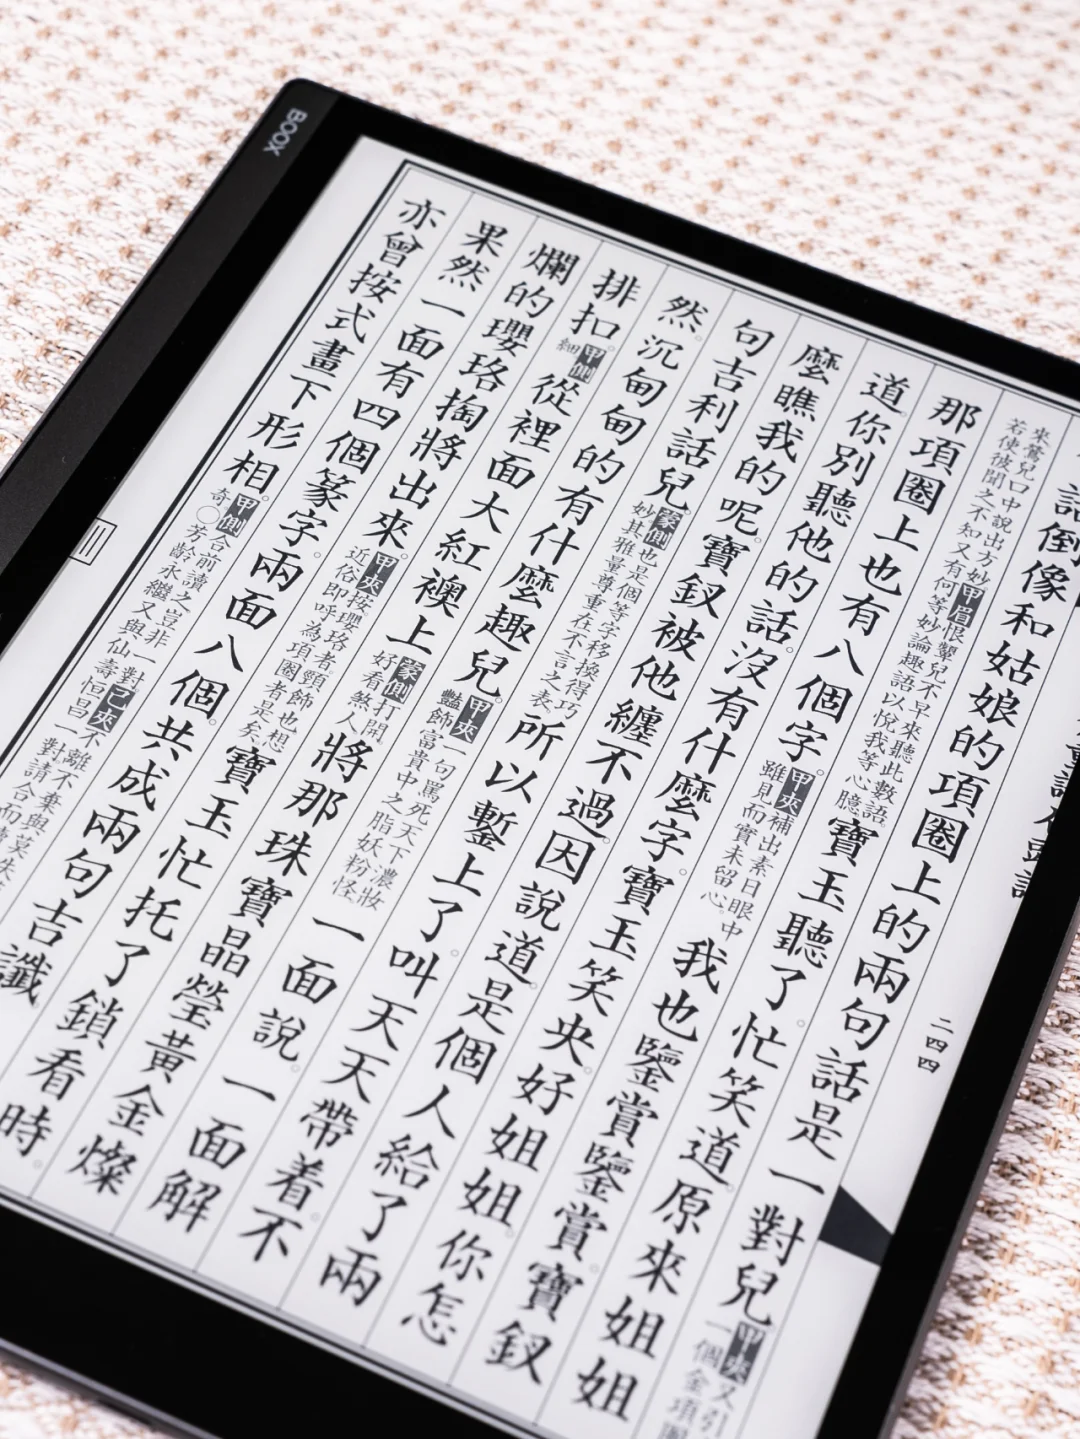 話倒像和姑娘的項圈上的兩句話是一對兒甲夾又引
一個金項圈
來鶯兒口中說出方妙甲眉恨顰兒不早來聽此數語。
若使被聞之不知又有何等妙論趣語以悅我等心臆
寶玉聽了。忙笑道。原來姐姐
那項圈上也有八個字。甲夾補出素日眼中
雖見而實未留心。
我也鑒賞鑒賞。寶釵
道。你別聽他的話。沒有什麼字。寶玉笑央。好姐姐。你怎
麼瞧我的呢。寶釵被他纏不過。因說道。是個人給了兩
句吉利話兒。蒙側也是個等字移換得巧
妙其雅量尊重在不言之表。
所以鏨上了。叫天天帶着。不
然。沉甸甸的有什麼趣兒。甲夾一句罵死天下濃妝
豔飾富貴中之脂妖粉怪。
一面說。一面解
排扣。甲側
細
從裡面大紅襖上蒙側打開。
好看煞人
將那珠寶晶瑩黃金燦
爛的瓔珞掏將出來。甲夾按瓔珞者。頸飾也想
近俗即呼為項圈者是矣。
寶玉忙托了鎖看時。
果然一面有四個篆字。兩面八個。共成兩句吉讖
亦曾按式畫下形相。甲側合前讀之豈非一對己夾不離不棄與莫失
奇○芳齡永繼又與仙壽恒昌一對請合而
二四四
BOOX